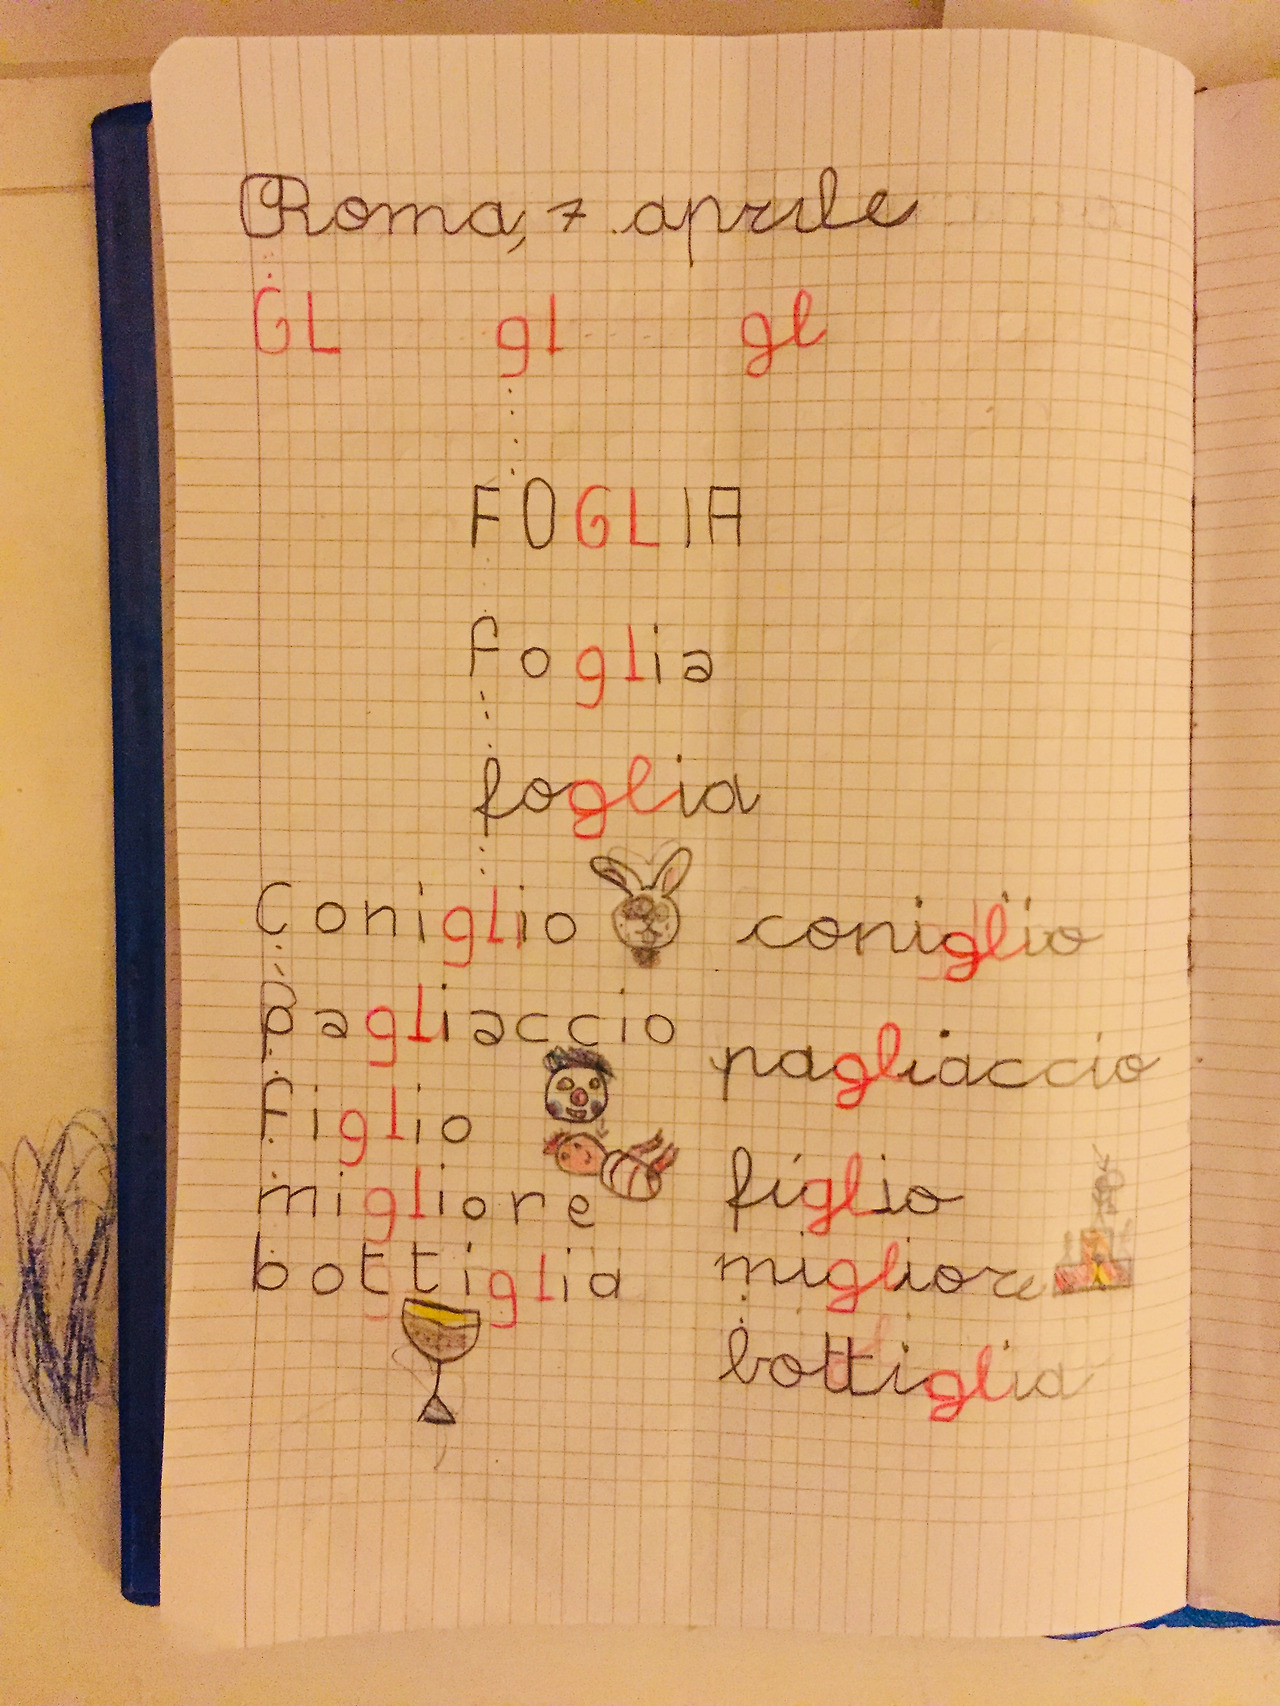 Roma, 7 aprile
GL gl gl
FOGLIA
foglia
foglia
Coniglio coniglio
pagliaccio pagliaccio
figlio figlio
migliore migliore
bottiglia bottiglia